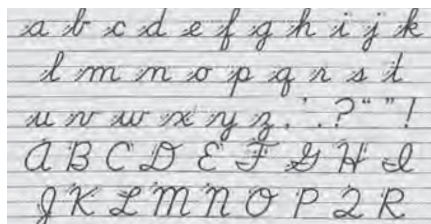 a b c d e f g h i j k
l m n o p q r s t
u v w x y z . ' . ? “ ” !
A B C D E F G H I
J K L M N O P Q R